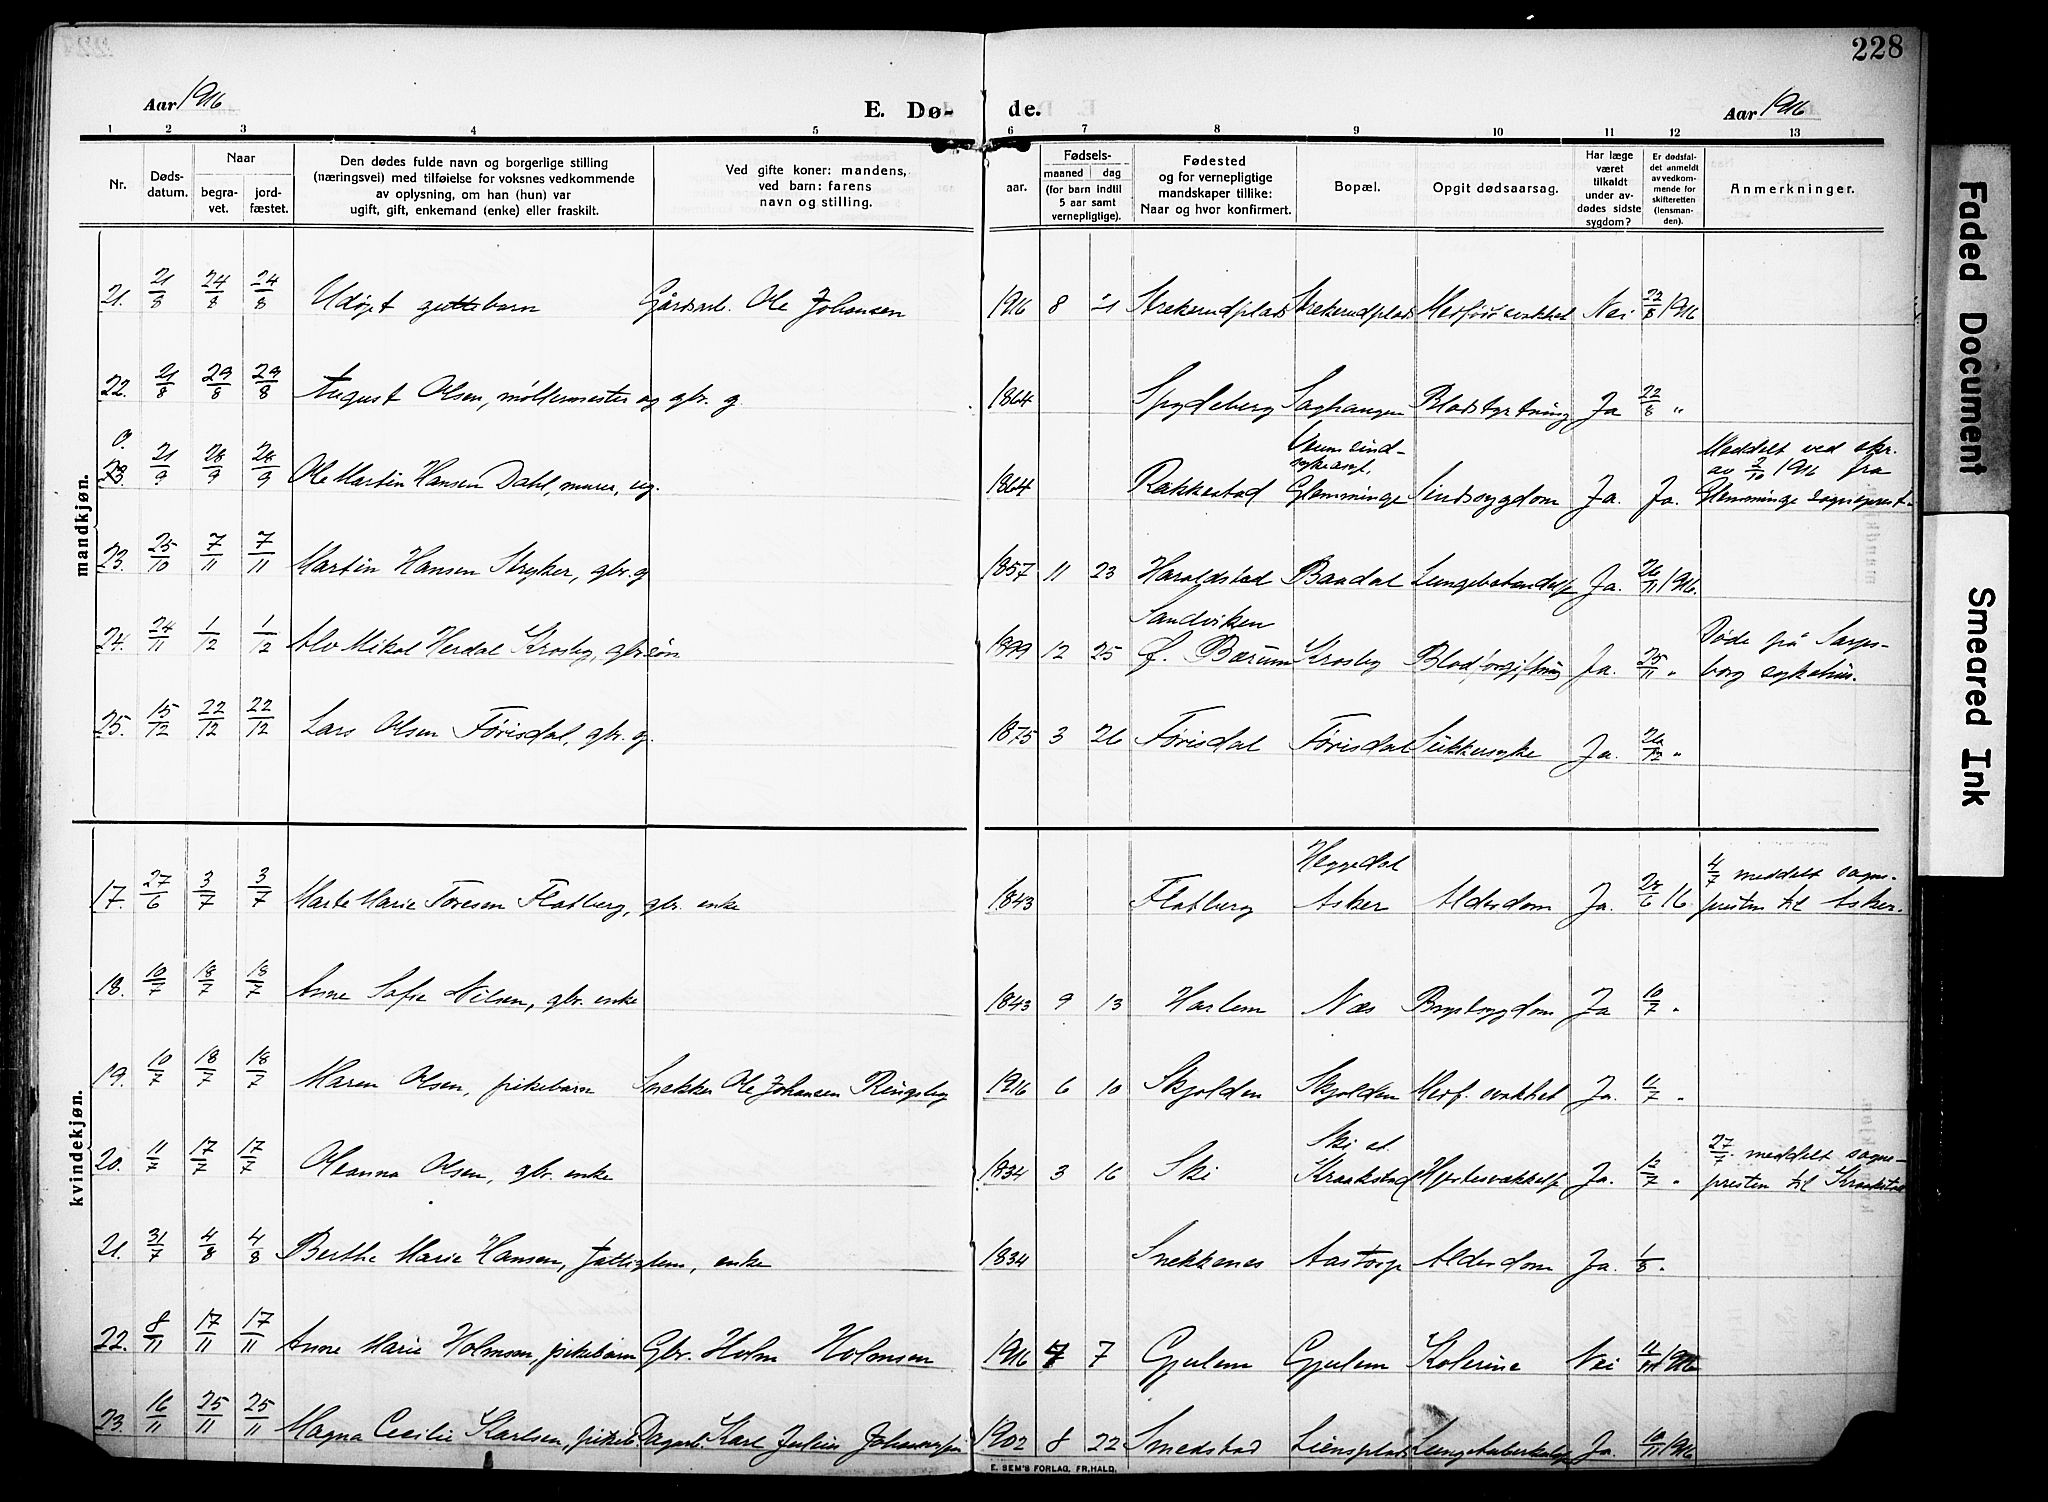 228
Aar 1916
E. Dø-
de.
Aar 1916
1 2 3 4 5 6 7 8 9 10 11 12 13
Nr.
Døds-
datum.
Naar
begra-
vet.
jord-
fæstet.
Den dødes fulde navn og borgerlige stilling
(næringsvei) med tilføielse for voksnes vedkommende
av oplysning, om han (hun) var
ugift, gift, enkemand (enke) eller fraskilt.
Ved gifte koner: mandens,
ved barn: farens
navn og stilling.
aar.
Fødsels-
maaned dag
(for barn indtil
5 aar samt
vernepligtige).
Fødested
og for vernepligtige
mandskaper tillike:
Naar og hvor konfirmert.
Bopæl.
Opgit dødsaarsag.
Har læge
været
tilkaldt
under av-
dødes sidste
sygdom?
Er dødsfal-
det anmeldt
av vedkom-
mende for
skifteretten
(lensman-
den).
Anmerkninger.
mandkjøn.
21. 21/8 24/8 24/8 Udøpt guttebarn Gårdsarb. Ole Johansen 1916 8 21 Nei 22/8 1916
22. 21/8 29/8 29/8 August Olsen, møllermester og gbr. g 1864 Spydeberg Saghaugen Blodstyrtning Ja 22/8 "
23 21/9 28/9 28/9 Ole Martin Hansen Dahl, murer, ug. 1864 Rakkestad Glemminge Sindssygdom Ja. Ja. Meddelt ved skr.
av 2/10 1916 fra
Glemminge sogneprest
23. 25/10 7/11 7/11 Martin Hansen Stryker, gbr. g 1857 11 23 Haraldstad Baadal Ja. 26/11 1916.
24. 24/11 1/12 1/12 Alv Mikal Herdal Krosby, gbr. søn 1899 12 25 Sandviken
f. Bærum Krosby Blodforgiftning Ja. 25/11 " Døde på Sarps-
borg sykehus.
25. 15/12 22/12 22/12 Lars Olsen Førisdal, gbr. g. 1875 3 26 Førisdal Førisdal Sukkersyke Ja. 26/12 "
kvindekjøn.
17. 27/6 3/7 3/7 Marte Marie Toresen Flatberg, gbr. enke 1843 Flatberg Heggedal
Asker Alderdom Ja. 28/6 16. 4/7 meddelt sogne-
presten til Asker.
18. 10/7 18/7 18/7 Anne Sofie Nilsen, gbr. enke 1843 9 13 Harlem Næs Brystsygdom Ja 10/7 "
19. 10/7 18/7 18/7 Maren Olsen, pikebarn Snekker Ole Johansen Ringsby 1916 6 10 Skjolden Skjolden Medf. svakhet Ja. 11/7 "
20. 11/7 17/7 17/7 Oleanna Olsen, gbr. enke 1834 3 16 Ski Ski st.
Kraakstad Hjertesvakkelse Ja. 12/7 " 27/7 meddelt sogne-
presten til Kraakstad
21. 31/7 4/8 4/8 Berthe Marie Hansen, fattiglem, enke 1834 Snekkenes Aastorp Alderdom Ja. 1/8 "
22. 8/11 17/11 17/11 Anne Marie Holmsen, pikebarn Gbr. Holm Holmsen 1916 7 Gjulem Gjulem Kolerine Nei 11/11 1916
23. 16/11 25/11 25/11 Magna Cecilie Karlsen, pikeb. Dagarb. Karl Julius Johannesen 1902 8 22 Smedstad Liensplads Lungetuberkulose Ja. 18/11 1916
E. SEM'S FORLAG, FR.HALD.
Faded Document
Smeared Ink